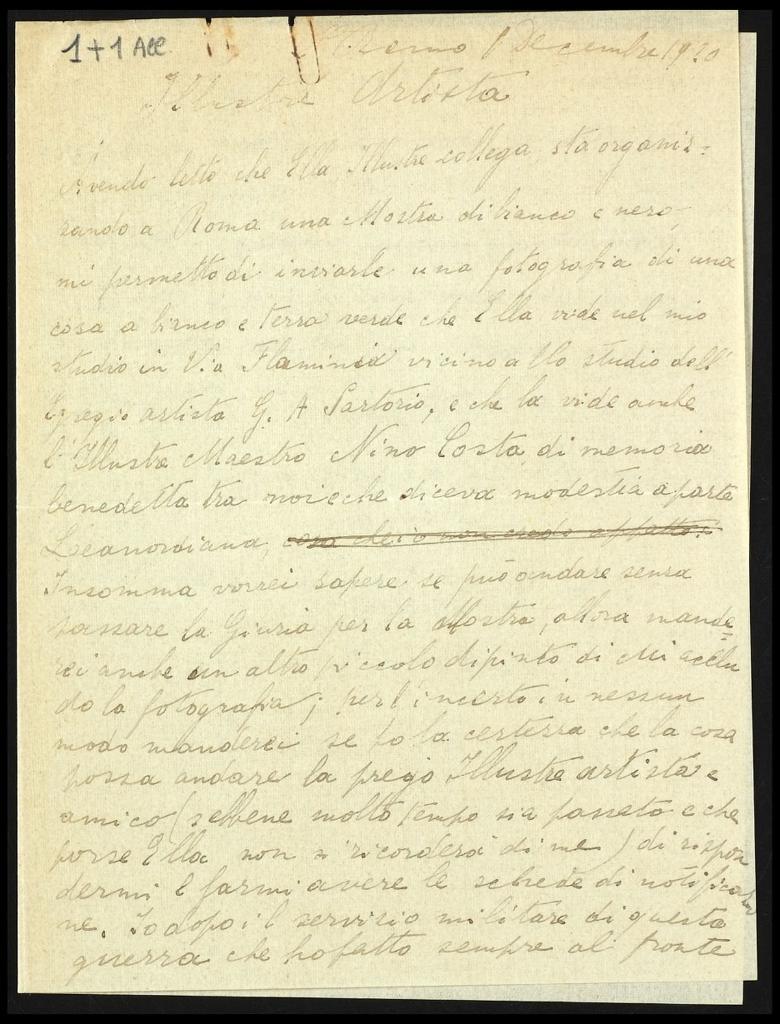 1+1 All.
1 Decembre 1920
Illustre Artista
Avendo letto che Ella Illustre collega, sta organiz=
zando a Roma una Mostra di bianco e nero,
mi permetto di inviarle una fotografia di una
cosa a bianco e terra verde che Ella vide nel mio
studio in Via Flaminia vicino allo studio dell'
Egregio artista G. A Sartorio, e che la vide anche
l'Illustre Maestro Nino Costa, di memoria
benedetta tra noi e che diceva modestia a parte
Leanordiana, cosa che io non credo affatto.
Insomma vorrei sapere se può andare senza
passare la Giuria per la Mostra, allora mande=
rei anche un altro piccolo dipinto di cui acclu
do la fotografia; per l'incerto in nessun
modo manderei se ho la certezza che la cosa
possa andare la prego Illustre artista e
amico (sebbene molto tempo sia passato e che
forse Ella non si ricorderà di me) di rispon
dermi e farmi avere le schede di notificazio
ne. Io dopo il servizio militare di questa
guerra che ho fatto sempre al fronte